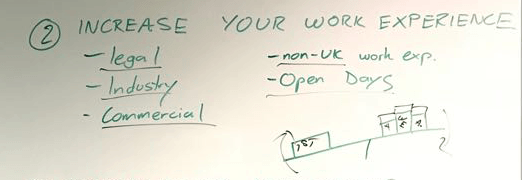 ② INCREASE YOUR WORK EXPERIENCE
- legal
- Industry
- Commercial
- non-UK work exp.
- Open Days
1st